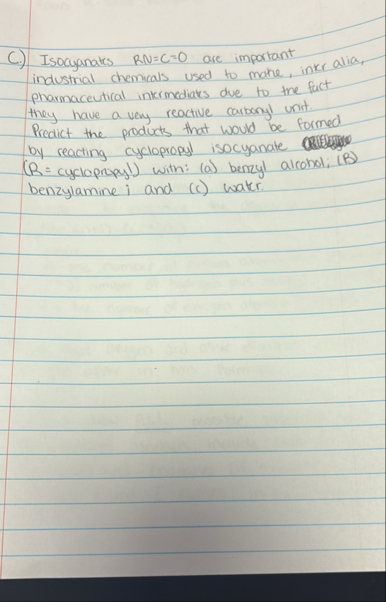 C) Isocyanates RN=C=O are important
industrial chemicals used to make, inter alia,
pharmaceutical intermediates due to the fact
they have a very reactive carbonyl unit.
Predict the products that would be formed
by reacting cyclopropyl isocyanate
(R = cyclopropyl) with: (a) benzyl alcohol; (B)
benzylamine; and (c) water.